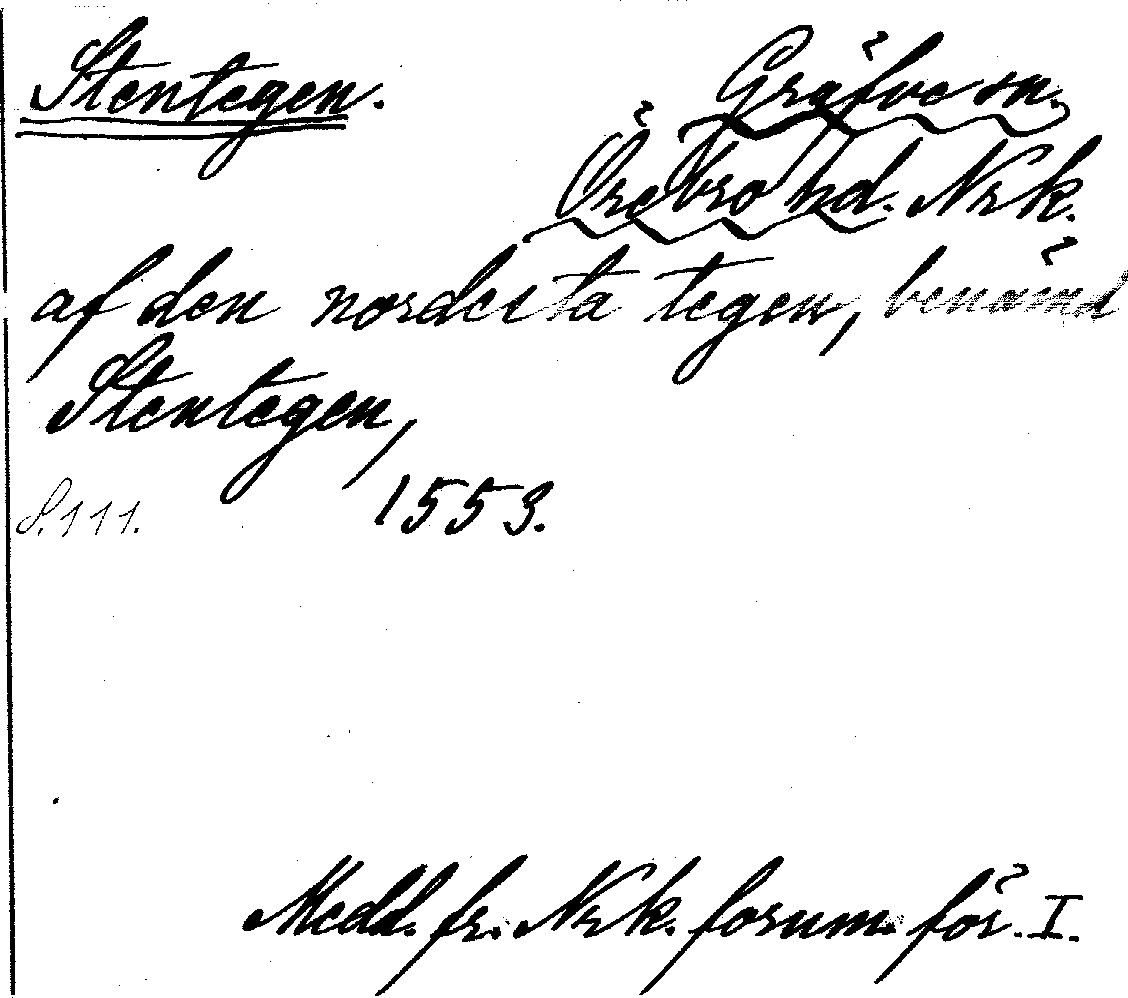 Stentegen.
Gräfve sn.
Örebro hd. Nrk.
af den nordesta tegen, benämd
Stentegen,
S. 111. 1553.
Medd. fr. Nrk. fornm. för. I.